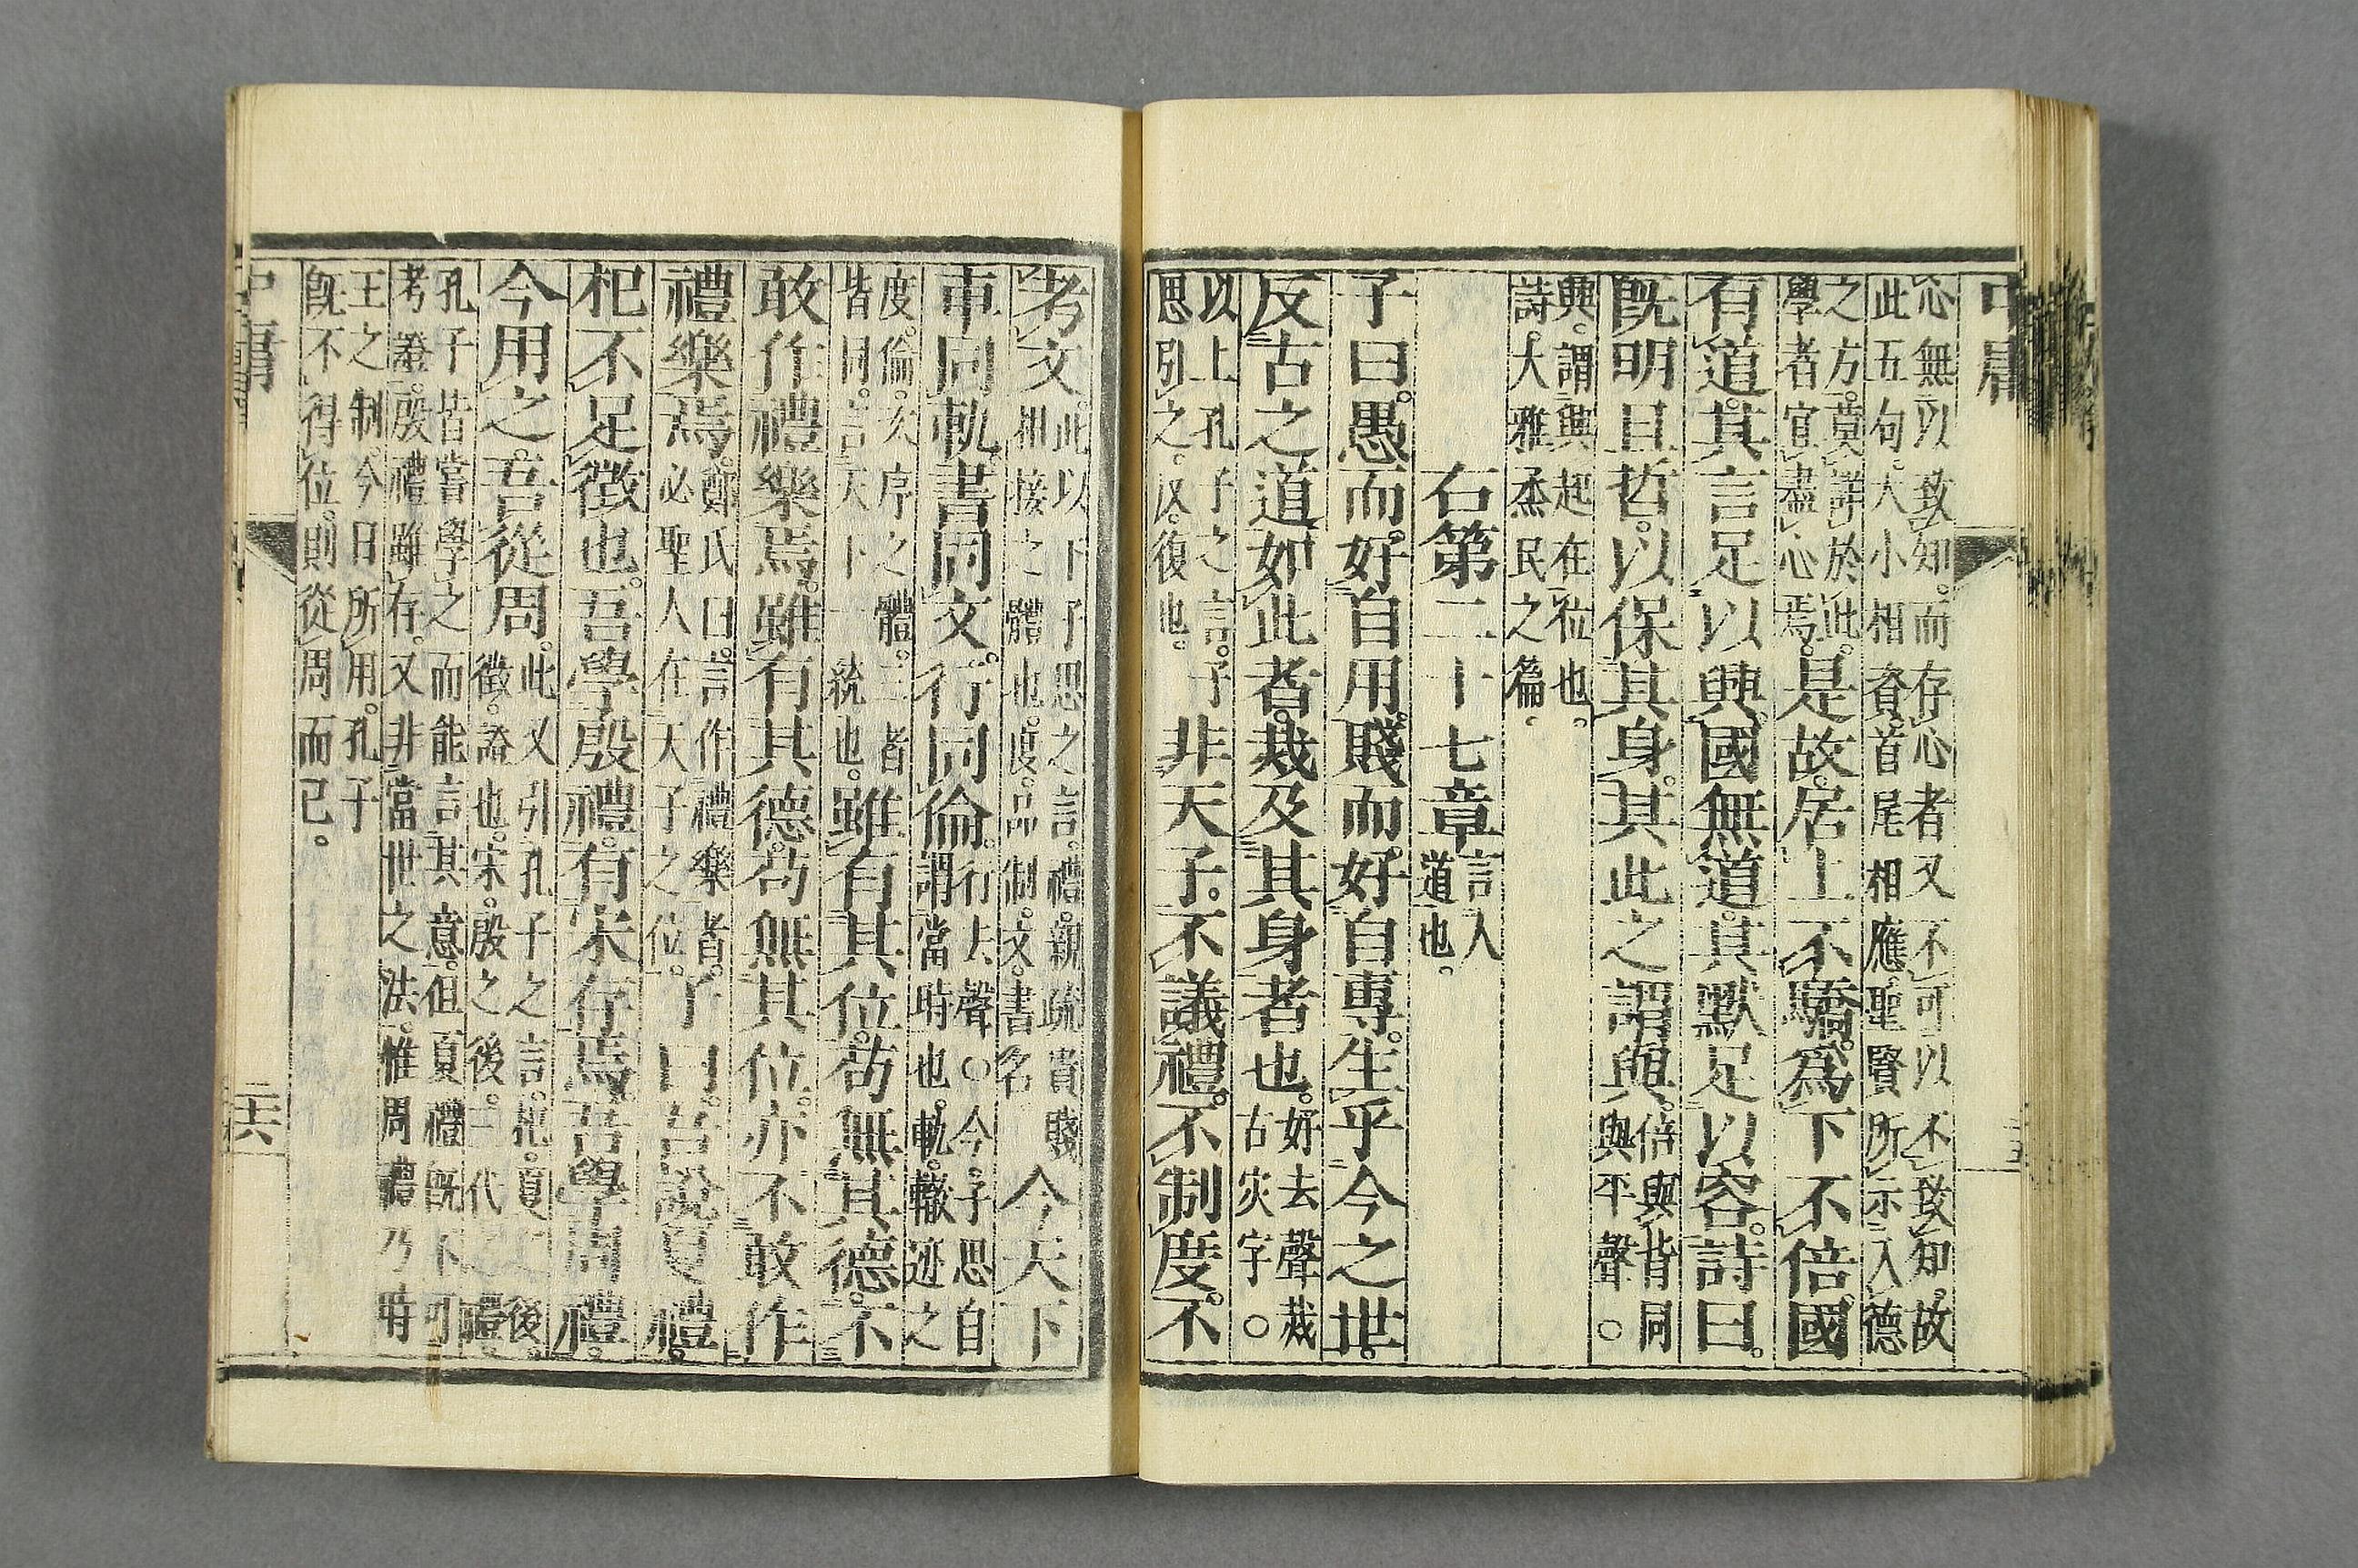 中庸
心無以致知。而存心者又不可以不致知。故
此五句。大小相資。首尾相應。聖賢所示入德
之方。莫詳於此。
學者宜盡心焉。
是故。居上不驕。爲下不倍。國
有道。其言足以興。國無道。其默足以容。詩曰。
旣明且哲。以保其身。其此之謂與。
倍與背同
與平聲○
興。謂興起在位也。
詩。大雅烝民之篇。
右第二十七章
言人
道也。
子曰。愚而好自用。賤而好自專。生乎今之世。
反古之道。如此者。烖及其身者也。
好去聲烖
古灾字○
以上孔子之言。子
思引之。反。復也。
非天子。不議禮。不制度。不
考文。
此以下子思之言。禮。親疏貴賤
相接之體也。度。品制。文。書名
今天下
車同軌。書同文。行同倫。
行去聲○今。子思自
謂當時也。軌。轍迹之
度。倫。次序之體。三者
皆同。言天下一統也。
雖有其位。苟無其德。不
敢作禮樂焉。雖有其德。苟無其位。亦不敢作
禮樂焉。
鄭氏曰。言作禮樂者。
必聖人在天子之位。
子曰。吾說夏禮。
杞不足徵也。吾學殷禮。有宋存焉。吾學周禮。
今用之。吾從周。
此又引孔子之言。杞。夏之後。
徵。證也。宋。殷之後。三代之禮。
孔子皆嘗學之而能言其意。但夏禮旣不可
考證。殷禮雖存。又非當世之法。惟周禮乃時
王之制。今日所用。孔子
旣不得位。則從周而已。
中庸
二十六